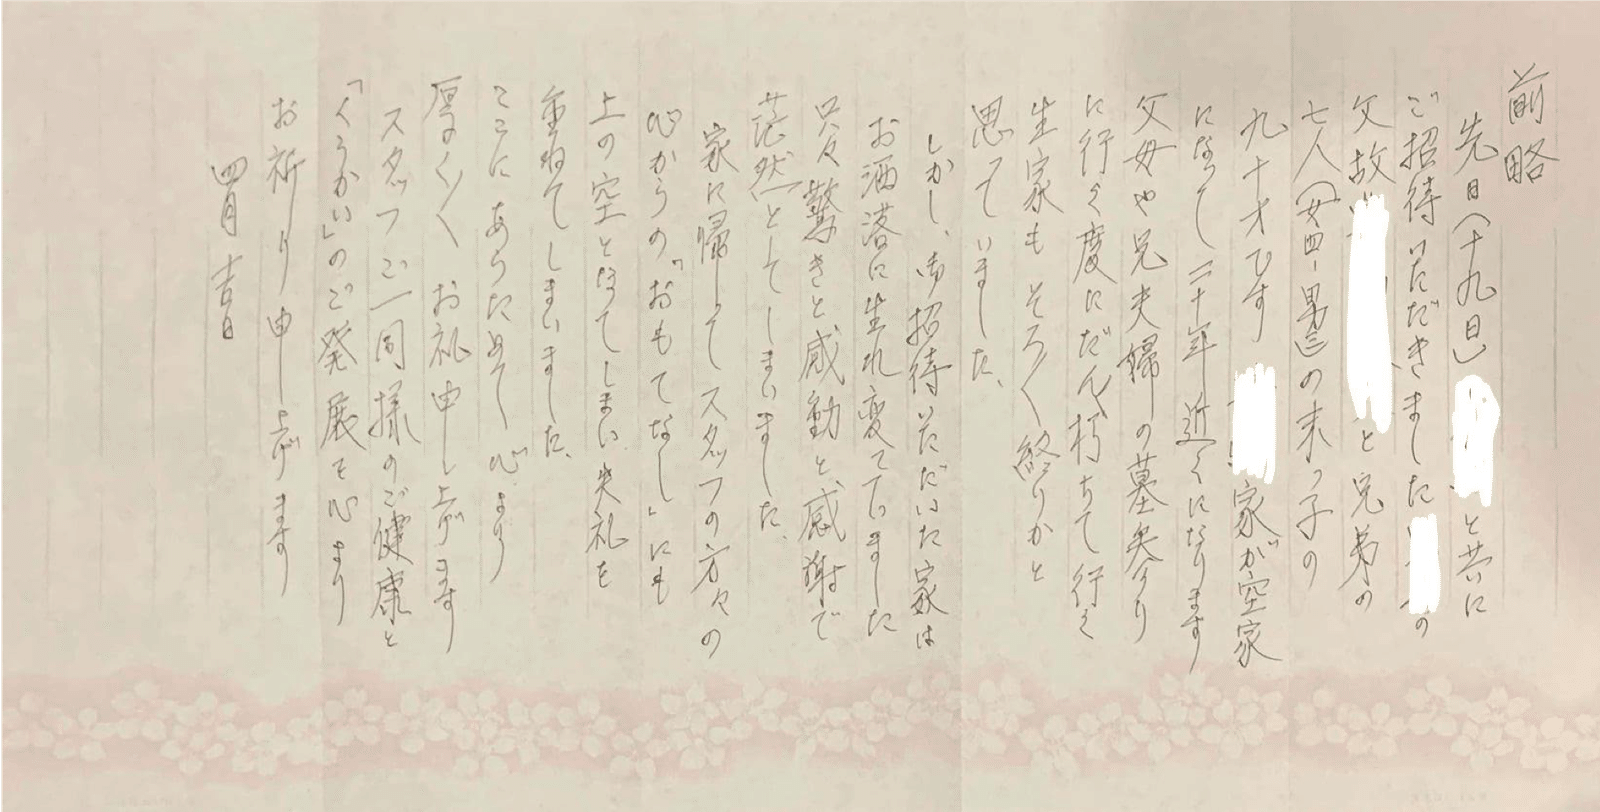 前略
先日(十九日)と共に
ご招待いただきましたの
父故と兄弟の
七人(女四・男三)の末っ子の
九十才です 家が空家
になって二十年近くになります
父母や兄夫婦の墓参り
に行く度にだんだん朽ちて行く
生家もそろ〳〵終りかと
思っていました、
しかし、御招待いただいた家は
お洒落に生れ変っていました
只々驚きと感動と感謝で
茫然としてしまいました、
家に帰ってスタッフの方々の
心からの「おもてなし」にも
上の空となってしまい失礼を
重ねてしまいました、
ここにあらためて心より
厚く〳〵お礼申し上げます
スタッフご一同様のご健康と
「くうかい」のご発展を心より
お祈り申し上げます
四月吉日